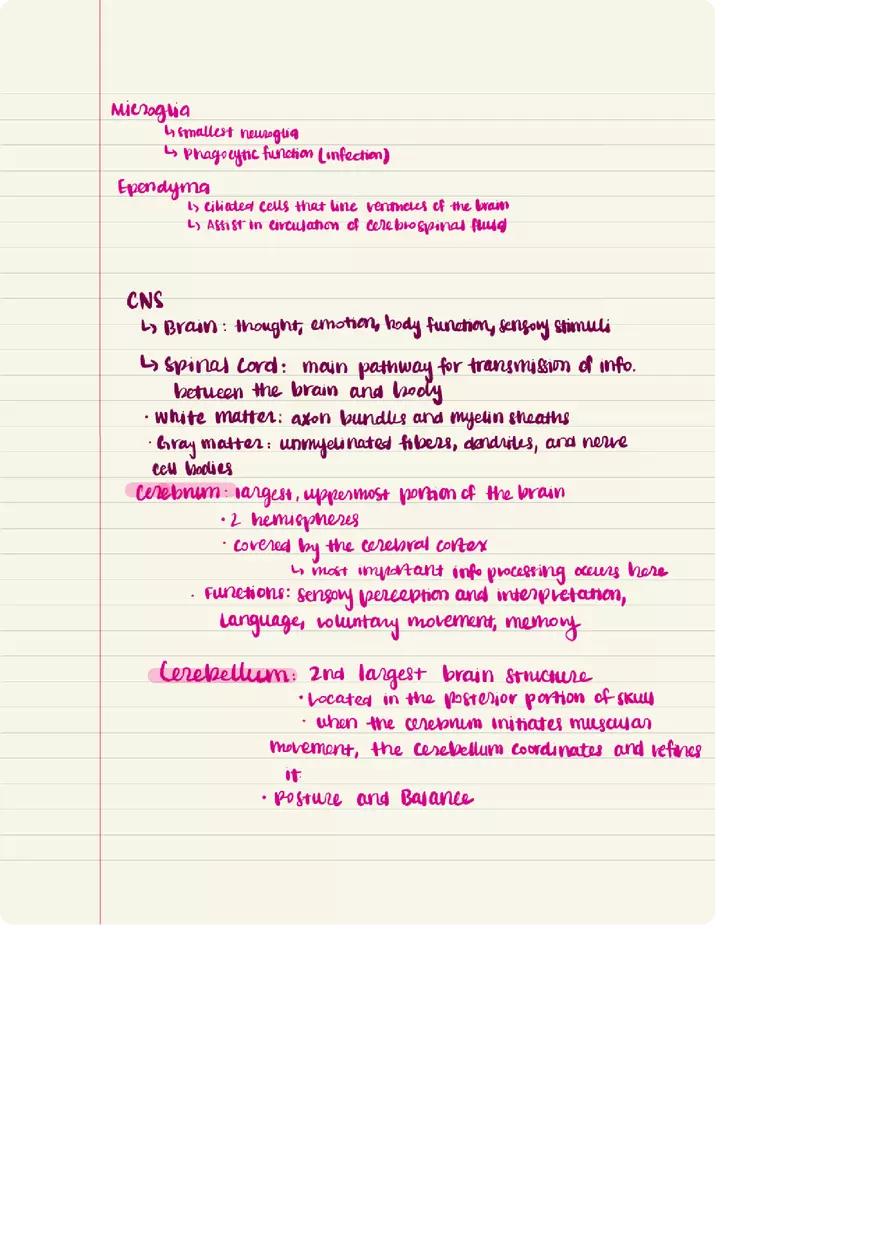 Microglia
↳ smallest neuroglia
↳ Phagocytic function (infection)
Ependyma
↳ ciliated cells that line ventricles of the brain
↳ Assist in circulation of cerebrospinal fluid
CNS
↳ Brain: thought, emotion, body function, sensory stimuli
↳ Spinal Cord: main pathway for transmission of info.
between the brain and body
· White matter: axon bundles and myelin sheaths
· Gray matter: unmyelinated fibers, dendrites, and nerve
cell bodies
Cerebrum: largest, uppermost portion of the brain
· 2 hemispheres
· covered by the cerebral cortex
↳ most important info processing occurs here
· Functions: sensory perception and interpretation,
language, voluntary movement, memory
Cerebellum: 2nd largest brain structure
· Located in the posterior portion of skull
· when the cerebrum initiates muscular
movement, the cerebellum coordinates and refines
it.
· Posture and Balance